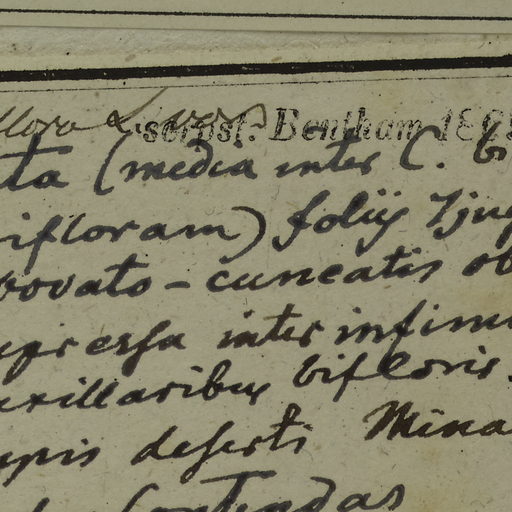 flora
scripsi. Bentham 186
ta (media inter C. bi
ifloram) foliis 7jug
bovato-cuneatis ob
pressa inter infim
axillaribus bifloris.
upis deserti Mina
Contendas